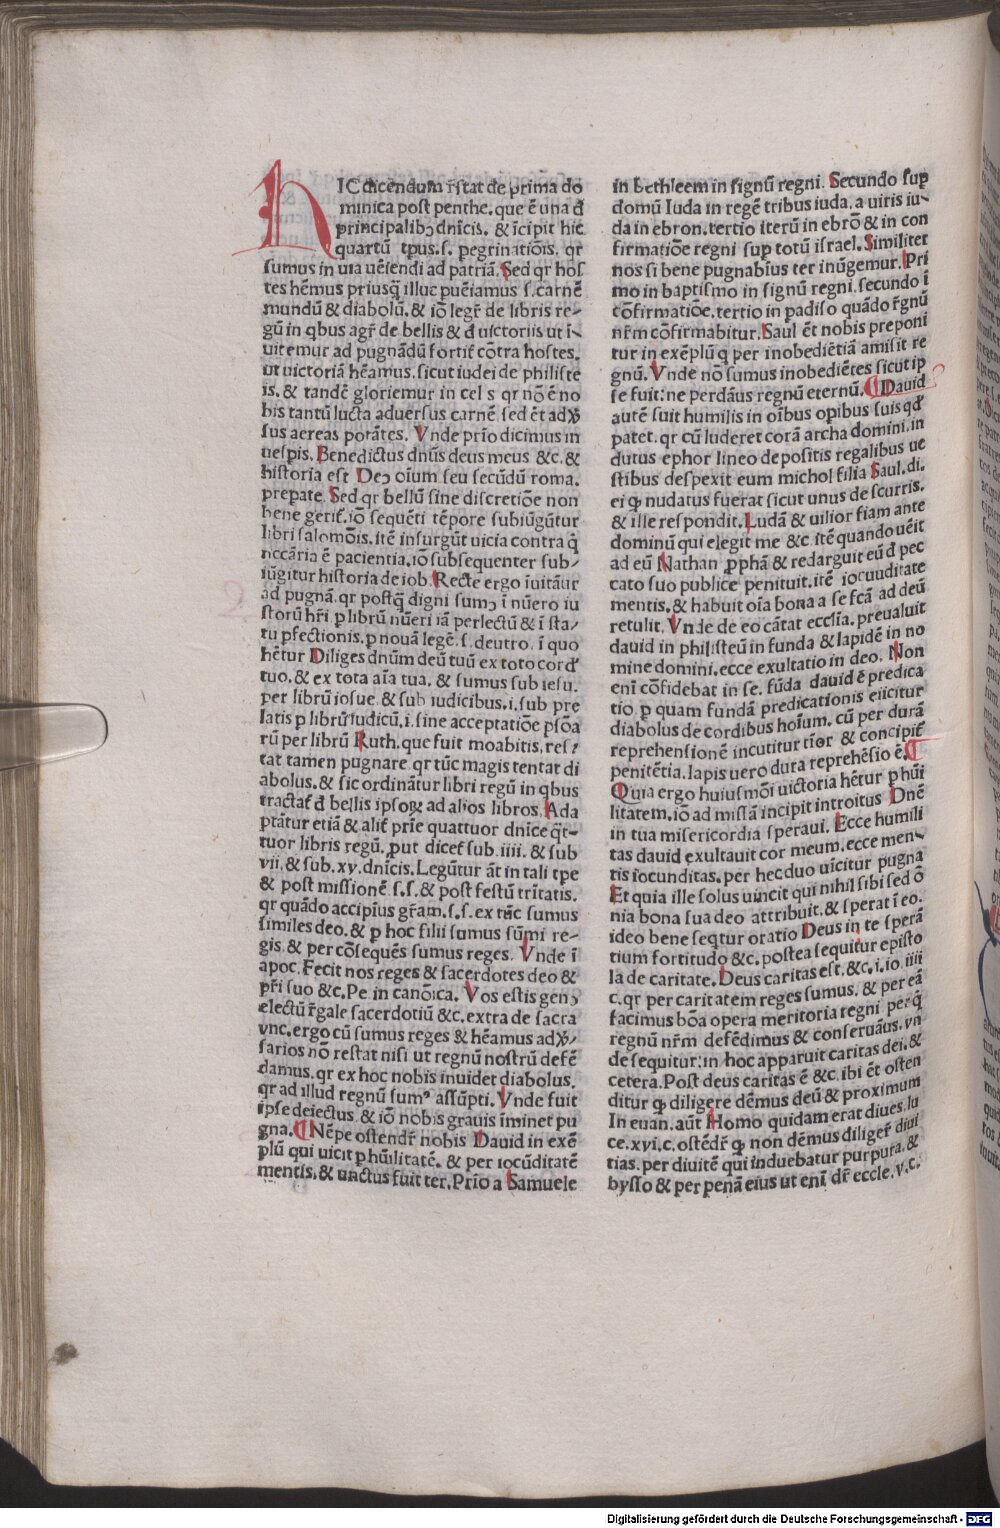 HIC dicendum r̄stat de prima do
minica post penthe. que ē una đ
principalibꝯ dn̄icis. & īcipit hic
quartū tꝑus. s. ꝑegrinatiōis. qr
sumus in uia uēiendi ad patriā. Sed qr hos
tes hēmus priusꝗ̄ illuc puēiamus s. carnē
mundū & diabolū. & iō legr̄ de libris re-
gū in qbus agr̄ de bellis & đ uictoriis ut ī-
uitemur ad pugnādū fortir̄ cōtra hostes.
ut uictoriā hēamus. sicut iudei de philiste
is. & tandē gloriemur in cel s qr nō ē no
bis tantū lucta aduersus carnē sed ēt adꝟ
sus aereas potātes. Vnde prīo dicimus in
uesꝑis. Benedictus dn̄us deus meus &c. &
historia est Deꝯ oīum seu secūdū roma.
preꝑate. Sed qr bellū sine discretiōe non
bene gerit̄. iō sequēti tēpore subiūgūtur
libri salomōis. itē insurgūt uicia contra ꝗ̄
nccāria ē pacientia. iō subsequenter sub-
iūgitur historia de iob. Recte ergo īuitāur
ad pugnā. qr postꝗ̄ digni sumꝯ ī nūero iu
storū hr̄i ꝑ librū nūeri iā perlectū & ī sta-
tu ꝑfectionis. ꝑ nouā legē. s. deutro. ī quo
hētur Diliges dn̄um deū tuū ex toto corđ
tuo. & ex tota aīa tua. & sumus sub iesu.
per librū iosue. & sub iudicibus. i. sub pre
latis ꝑ librū iudicū. i. sine acceptatiōe ꝑsōa
rū per librū Ruth. que fuit moabitis. res-
tat tamen pugnare. qr tūc magis tentat di
abolus. & sic ordinātur libri regū in qbus
tractat̄ đ bellis ipsoꝝ ad alios libros. Ada
ptātur etiā & alit̄ prīe quattuor dn̄ice ꝗ̄t-
tuor libris regū. ꝓut dicet̄ sub. iiii. & sub
vii. & sub. xv. dn̄icis. Legūtur āt in tali tꝑe
& post missionē s. s. & post festū tr̄itatis.
qr quādo accipīus gr̄am. s. s. ex tūc sumus
similes deo. & ꝑ hoc filii sumus sūmi re-
gis. & per cōsequēs sumus reges. Vnde ī
apoc. Fecit nos reges & sacerdotes deo &
pr̄i suo &c. Pe in canōica. Vos estis genꝯ
electū r̄gale sacerdotiū &c. extra de sacra
vnc. ergo cū sumus reges & hēamus adꝟ-
sarios nō restat nisi ut regnū nostrū defē
damus. qr ex hoc nobis inuidet diabolus.
qr ad illud regnū sumꝰ assūpti. Vnde fuit
ipse deiectus. & iō nobis grauis īminet pu
gna. ¶ Nēpe ostendr̄ nobis Dauid in exē
plū qui uicit ꝑ hūilitatē. & per iocūditatē
mentis. & unctus fuit ter. Prīo a Samuele
in bethleem in signū regni. Secundo suꝑ
domū Iuda in regē tribus iuda. a uiris iu-
da in ebron. tertio iterū in ebrō & in con
firmatiōe regni suꝑ totū israel. Similiter
nos si bene pugnabīus ter inūgemur. Pri
mo in baptismo in signū regni. secundo ī
cōfirmatiōe. tertio in padiso quādo r̄gnū
nr̄m cōfirmabitur. Saul ēt nobis preponi
tur in exēplū ꝙ per inobediētiā amisit re
gnū. Vnde nō sumus inobediētes sicut ip
se fuit: ne perdāus regnū eternū. ¶ Dauid
autē fuit humilis in oībus opibus suis qđ
patet. qr cū luderet corā archa domini. in
dutus ephor lineo depositis regalibus ue
stibus despexit eum michol filia Saul. di.
ei ꝙ nudatus fuerat sicut unus de scurris.
& ille respondit. Ludā & uilior fiam ante
dominū qui elegit me &c itē quando uēit
ad eū Nathan ꝓphā & redarguit eū đ pec
cato suo publice penituit. itē iocuuditate
mentis. & habuit oīa bona a se fcā ad deū
retulit. Vnde de eo cātat eccl̄ia. preualuit
dauid in philisteū in funda & lapidē in no
mine domini. ecce exultatio in deo. Non
enī cōfidebat in se. fūda dauid ē predica
tio. ꝑ quam fundā predicationis eiicitur
diabolus de cordibus hoīum. cū per durā
reprehensionē incutitur tīor & concipit̄
penitētia. lapis uero dura reprehēsio ē. ¶
Quia ergo huiusmōi uictoria hētur ꝑ hūi
litatem. iō ad missā incipit introitus Dn̄ē
in tua misericordia speraui. Ecce humili
tas dauid exultauit cor meum. ecce men-
tis iocunditas. per hec duo uīcitur pugna
Et quia ille solus uincit qui nihil sibi sed ō
nia bona sua deo attribuit. & sperat ī eo.
ideo bene seqtur oratio Deus in te sperā
tium fortitudo &c. postea sequitur episto
la de caritate. Deus caritas est. &c. i. io. iiii
c. qr per caritatem reges sumus. & per eā
facimus bōa opera meritoria regni ꝑerꝗ̄
regnū nr̄m defēdimus & conseruāus. vn
de sequitur: in hoc apparuit caritas dei. &
cetera. Post deus caritas ē &c. ibi ēt osten
ditur ꝙ diligere dēmus deū & proximum
In euan. aūt Homo quidam erat diues. lu
ce. xvi. c. ostēdr̄ ꝙ non dēmus diliger̄ diui
tias. per diuitē qui induebatur purpura. &
bysso & per penā eius ut enī dr̄ eccle. v. c.
Digitalisierung gefördert durch die Deutsche Forschungsgemeinschaft - DFG